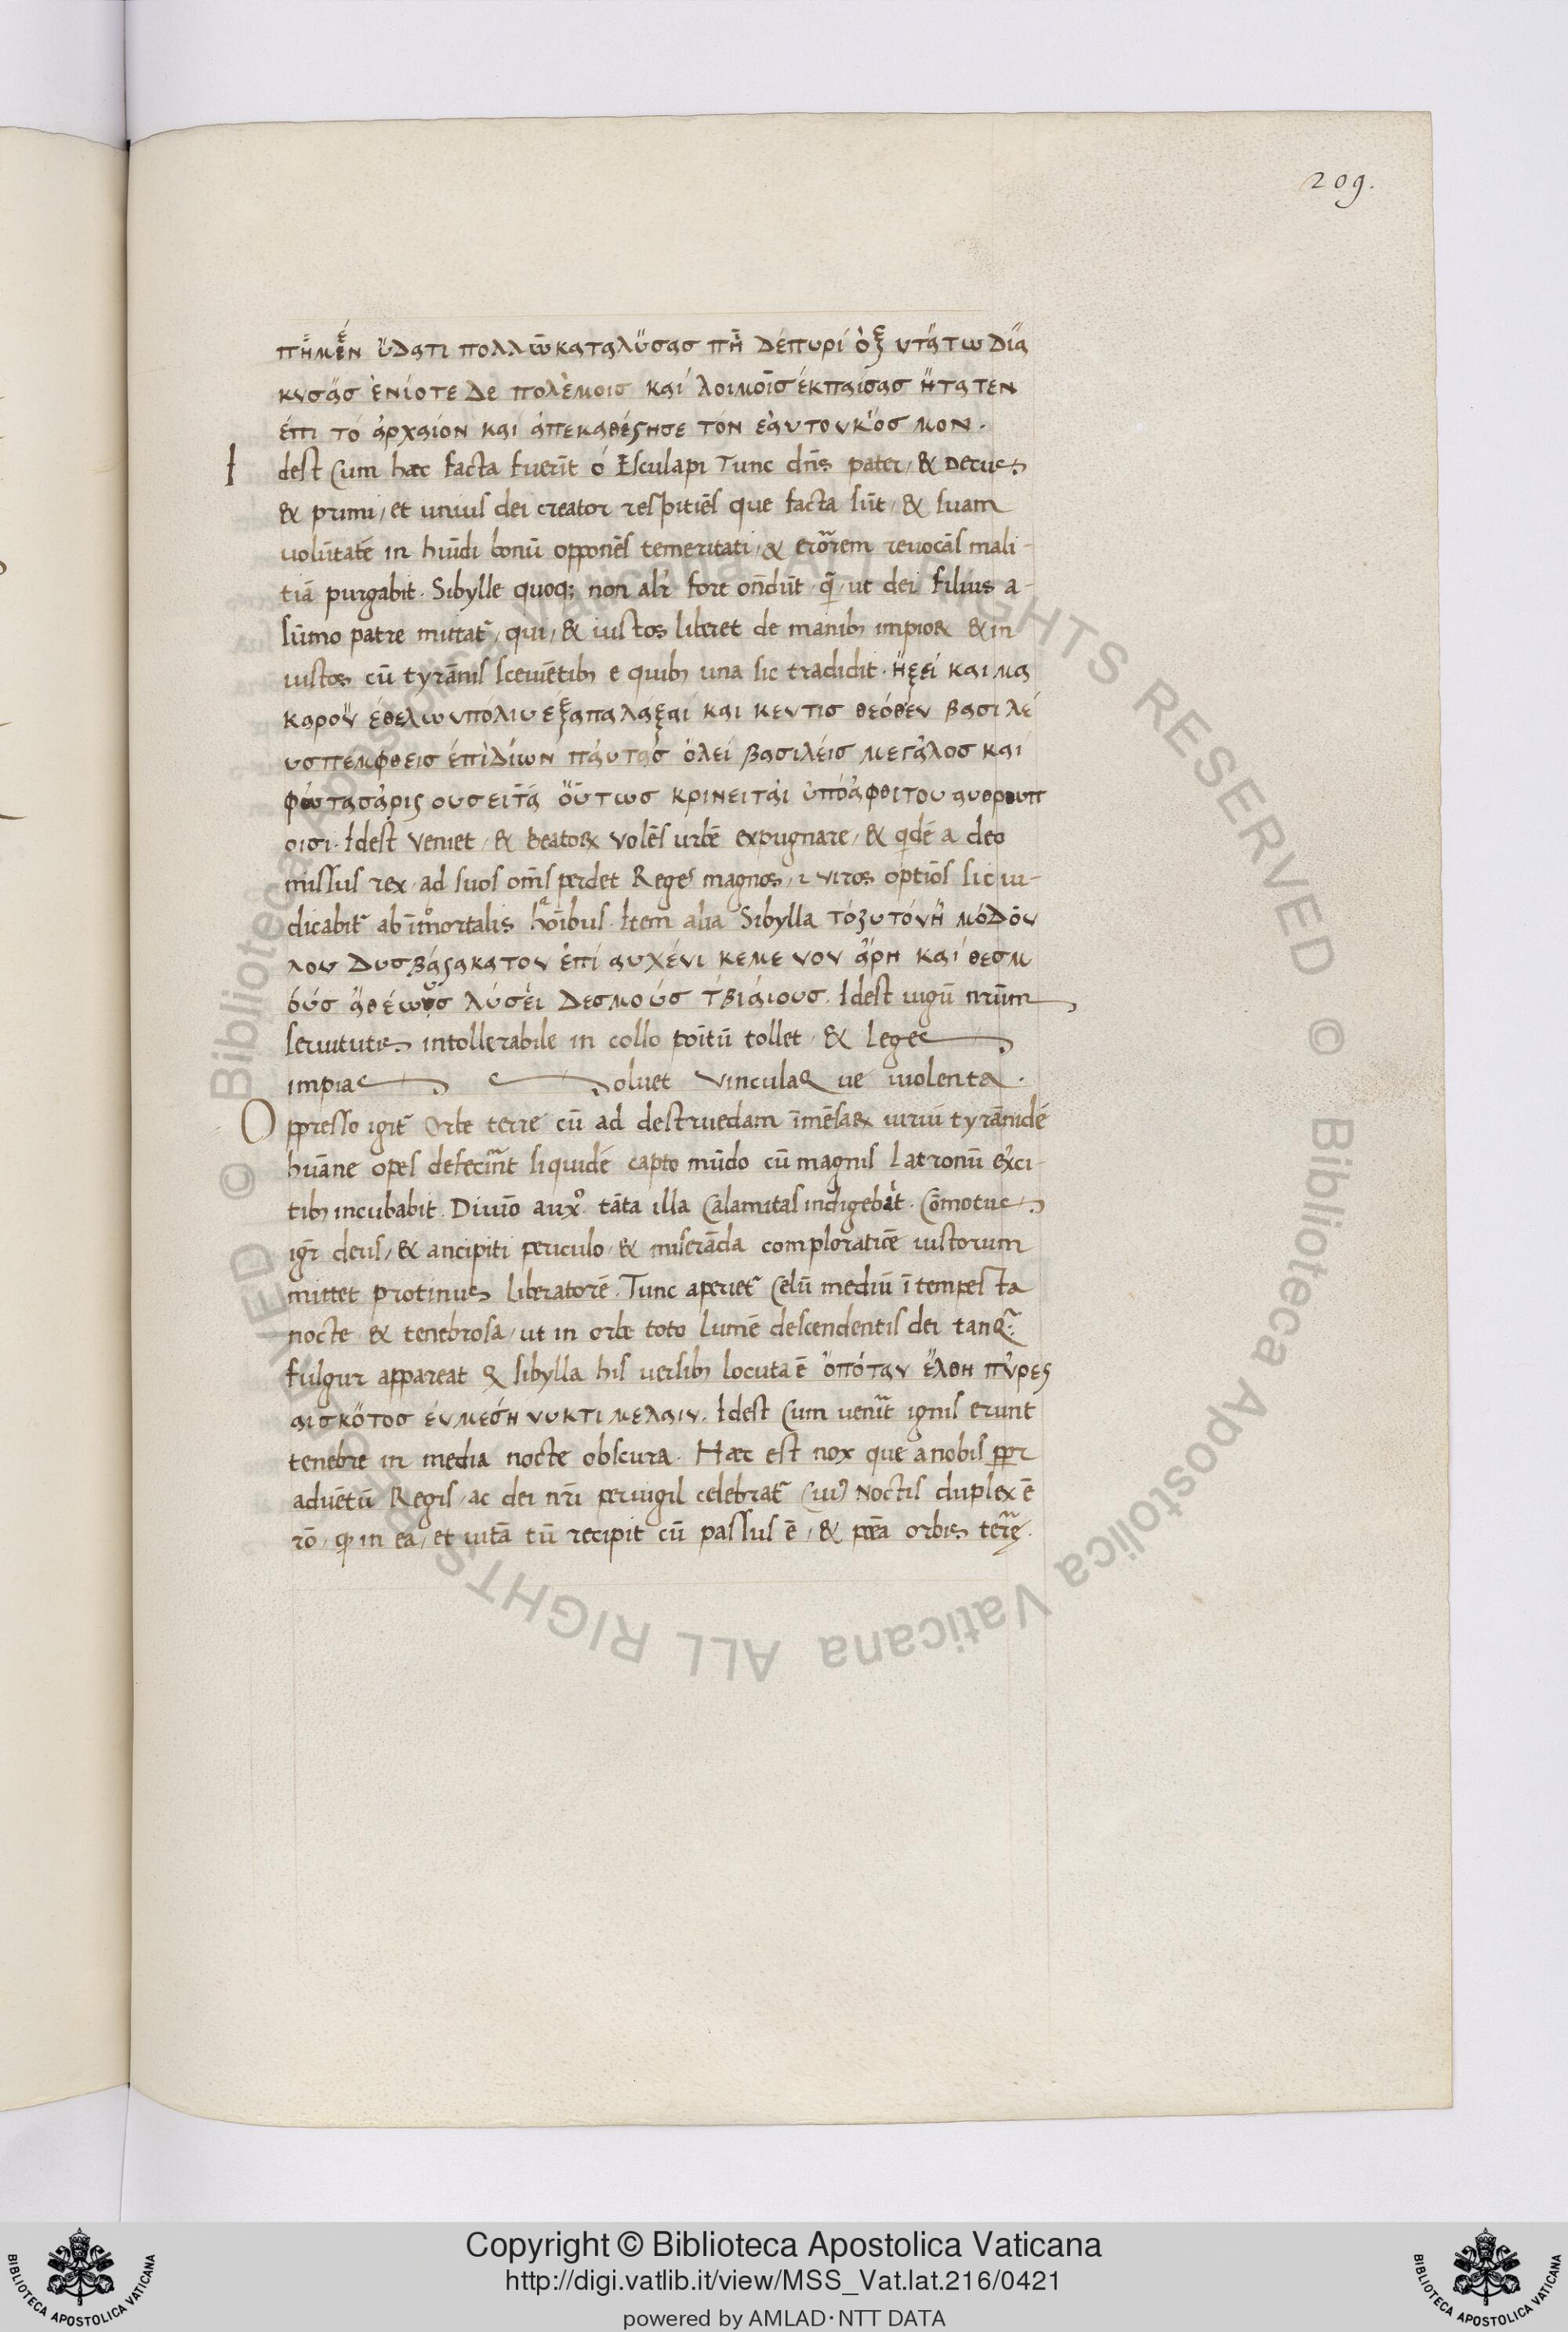 209.
πῆμέν ὕδατι πολλῶ καταλύσας πῆ δέπυρί ὀξυτάτω δία
κυσάς ἐνίοτε δε πολέμοις καί λοιμοῖς ἐκπαίσας ἤτατεν
ἐπι τό ἀρχαίον καί ἀπεκαθέςησε τόν ἑαυτου κόσμον.
Idest Cum hæc facta fuerīt ó Esculapi Tunc dn̄s pater, & Deus
& primi, et unius dei creator respitiēs que facta sūt, & suam
volūtatē in hūdi bonū opponēs temeritati, & erorem revocās mali-
tiā purgabit. Sibylle quoq; non alr̄ fore on̄dūt, q̄, ut dei filius a-
sūmo patre mittat᷑, qui, & iustos liberet de manib impioꝝ & in
iustos cū tyrānis sceuētib e quib una sic tradidit. ἥξει και μα
καρουν ἐθελωυπολιυ ἐξαπαλάξαί και κευτις θεόθέν βασιλέ
υς πεμφθεις ἐπὶδίων πάυτας ὀλεί βασιλέις μεγάλος καί
φωτασάρις ουσειτά οὕτως κρινειται ὑπόἀφθιτου αυθρωπ
οισι. Idest veniet, & beatoꝝ volēs urbē expugnare, & qdē a deo
missus rex, ad suos om̄s perdet Reges magnos, ⁊ viros optiōs sic iu-
dicabit᷑ ab īmortalis hōibus. Item alia Sibylla τόζυτόνη μόδόυ
λου δυσβάςακτου ἐπί αυχένι κεμενου ἄρη καί θεσμ
ούς ἀθέωυς λύσεί δεσμούς τβιάιους. Idest iugū nr̄um
servitutis intollerabile in collo poītū tollet & Leges
impias soluet vinculaq ue violenta.
Oppresso igit᷑ Orbe terre cū ad destruedam īmēsaꝝ uiriū tyrānidē
huāne opes defecīnt siquidē capto mūdo cū magnis latronū exci-
tib incubabit. Diuīo aux°. tāta illa Calamitas indigebat. Cōmotus
igr̄ deus, & ancipiti periculo, & miserāda comploratiōe iustorum
mittet protinus liberatorē. Tunc aperiet᷑ Celū mediū ī tempesta
nocte & tenebrosa, ut in orbe toto lumē descendentis dei tanq̄.
fulgur appareat q sibylla his versib locuta ē ὁπόταν ἔλθη πῦρ ες
αι σκότος ἐυ μεσή νυκτι μελαιν. Idest Cum uenīt ignis erunt
tenebre in media nocte obscura. Hæc est nox que a nobis ppr
aduētū Regis, ac dei nr̄i pervigil celebrat᷑ Cui⁹ Noctis duplex ē
rō, q in ea, et uitā tū recipit cū passus ē, & pea orbis tere.
Copyright © Biblioteca Apostolica Vaticana
http://digi.vatlib.it/view/MSS_Vat.lat.216/0421
powered by AMLAD·NTT DATA
BIBLIOTECA APOSTOLICA VATICANA
BIBLIOTECA APOSTOLICA VATICANA
© Biblioteca Apostolica Vaticana ALL RIGHTS RESERVED © Biblioteca Apostolica Vaticana ALL RIGHTS RESERVED